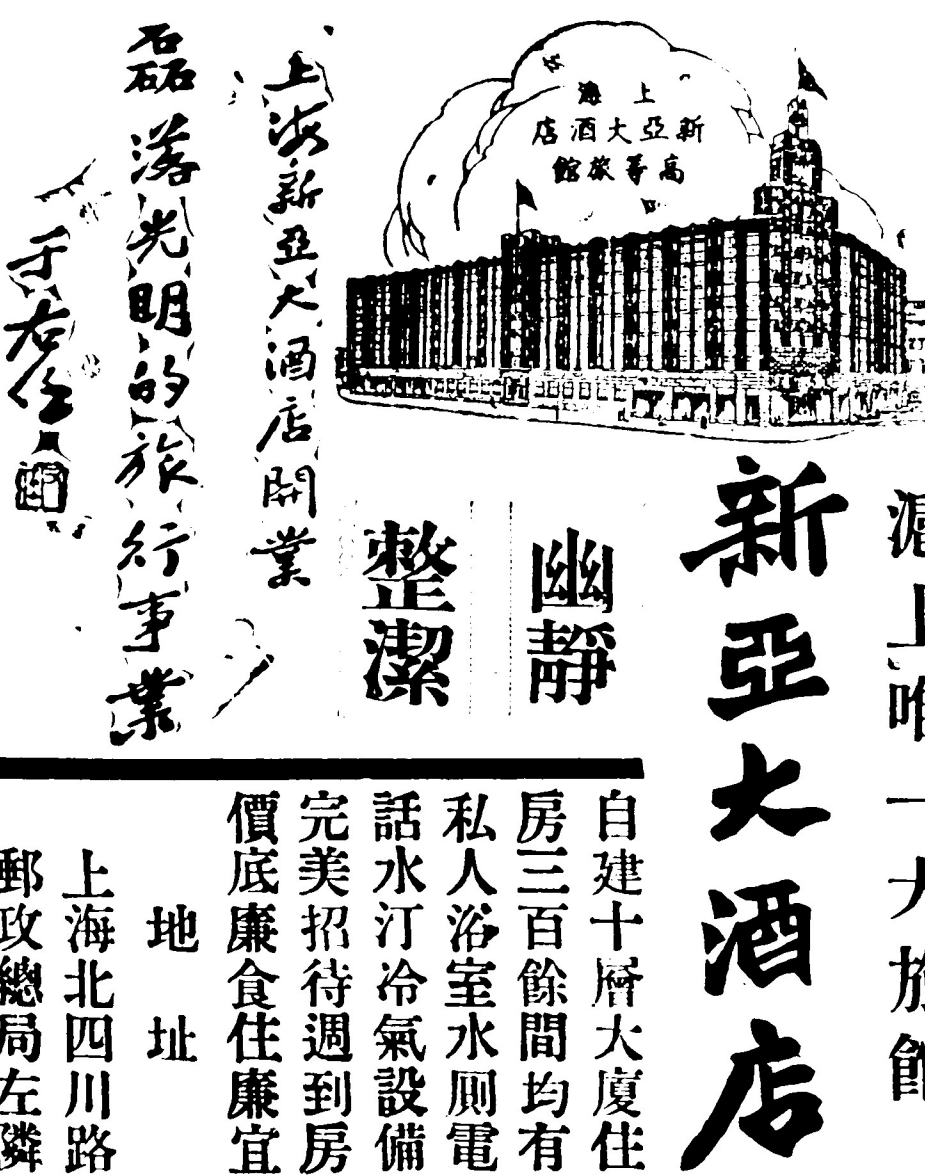 滬上唯一大旅館
新亞大酒店
上海
新亞大酒店
高等旅館
幽靜
整潔
上海新亞大酒店開業
磊落光明的旅行事業
于右任
自建十層大廈住
房三百餘間均有
私人浴室水厠電
話水汀冷氣設備
完美招待週到房
價底廉食住廉宜
地址
上海北四川路
郵政總局左隣